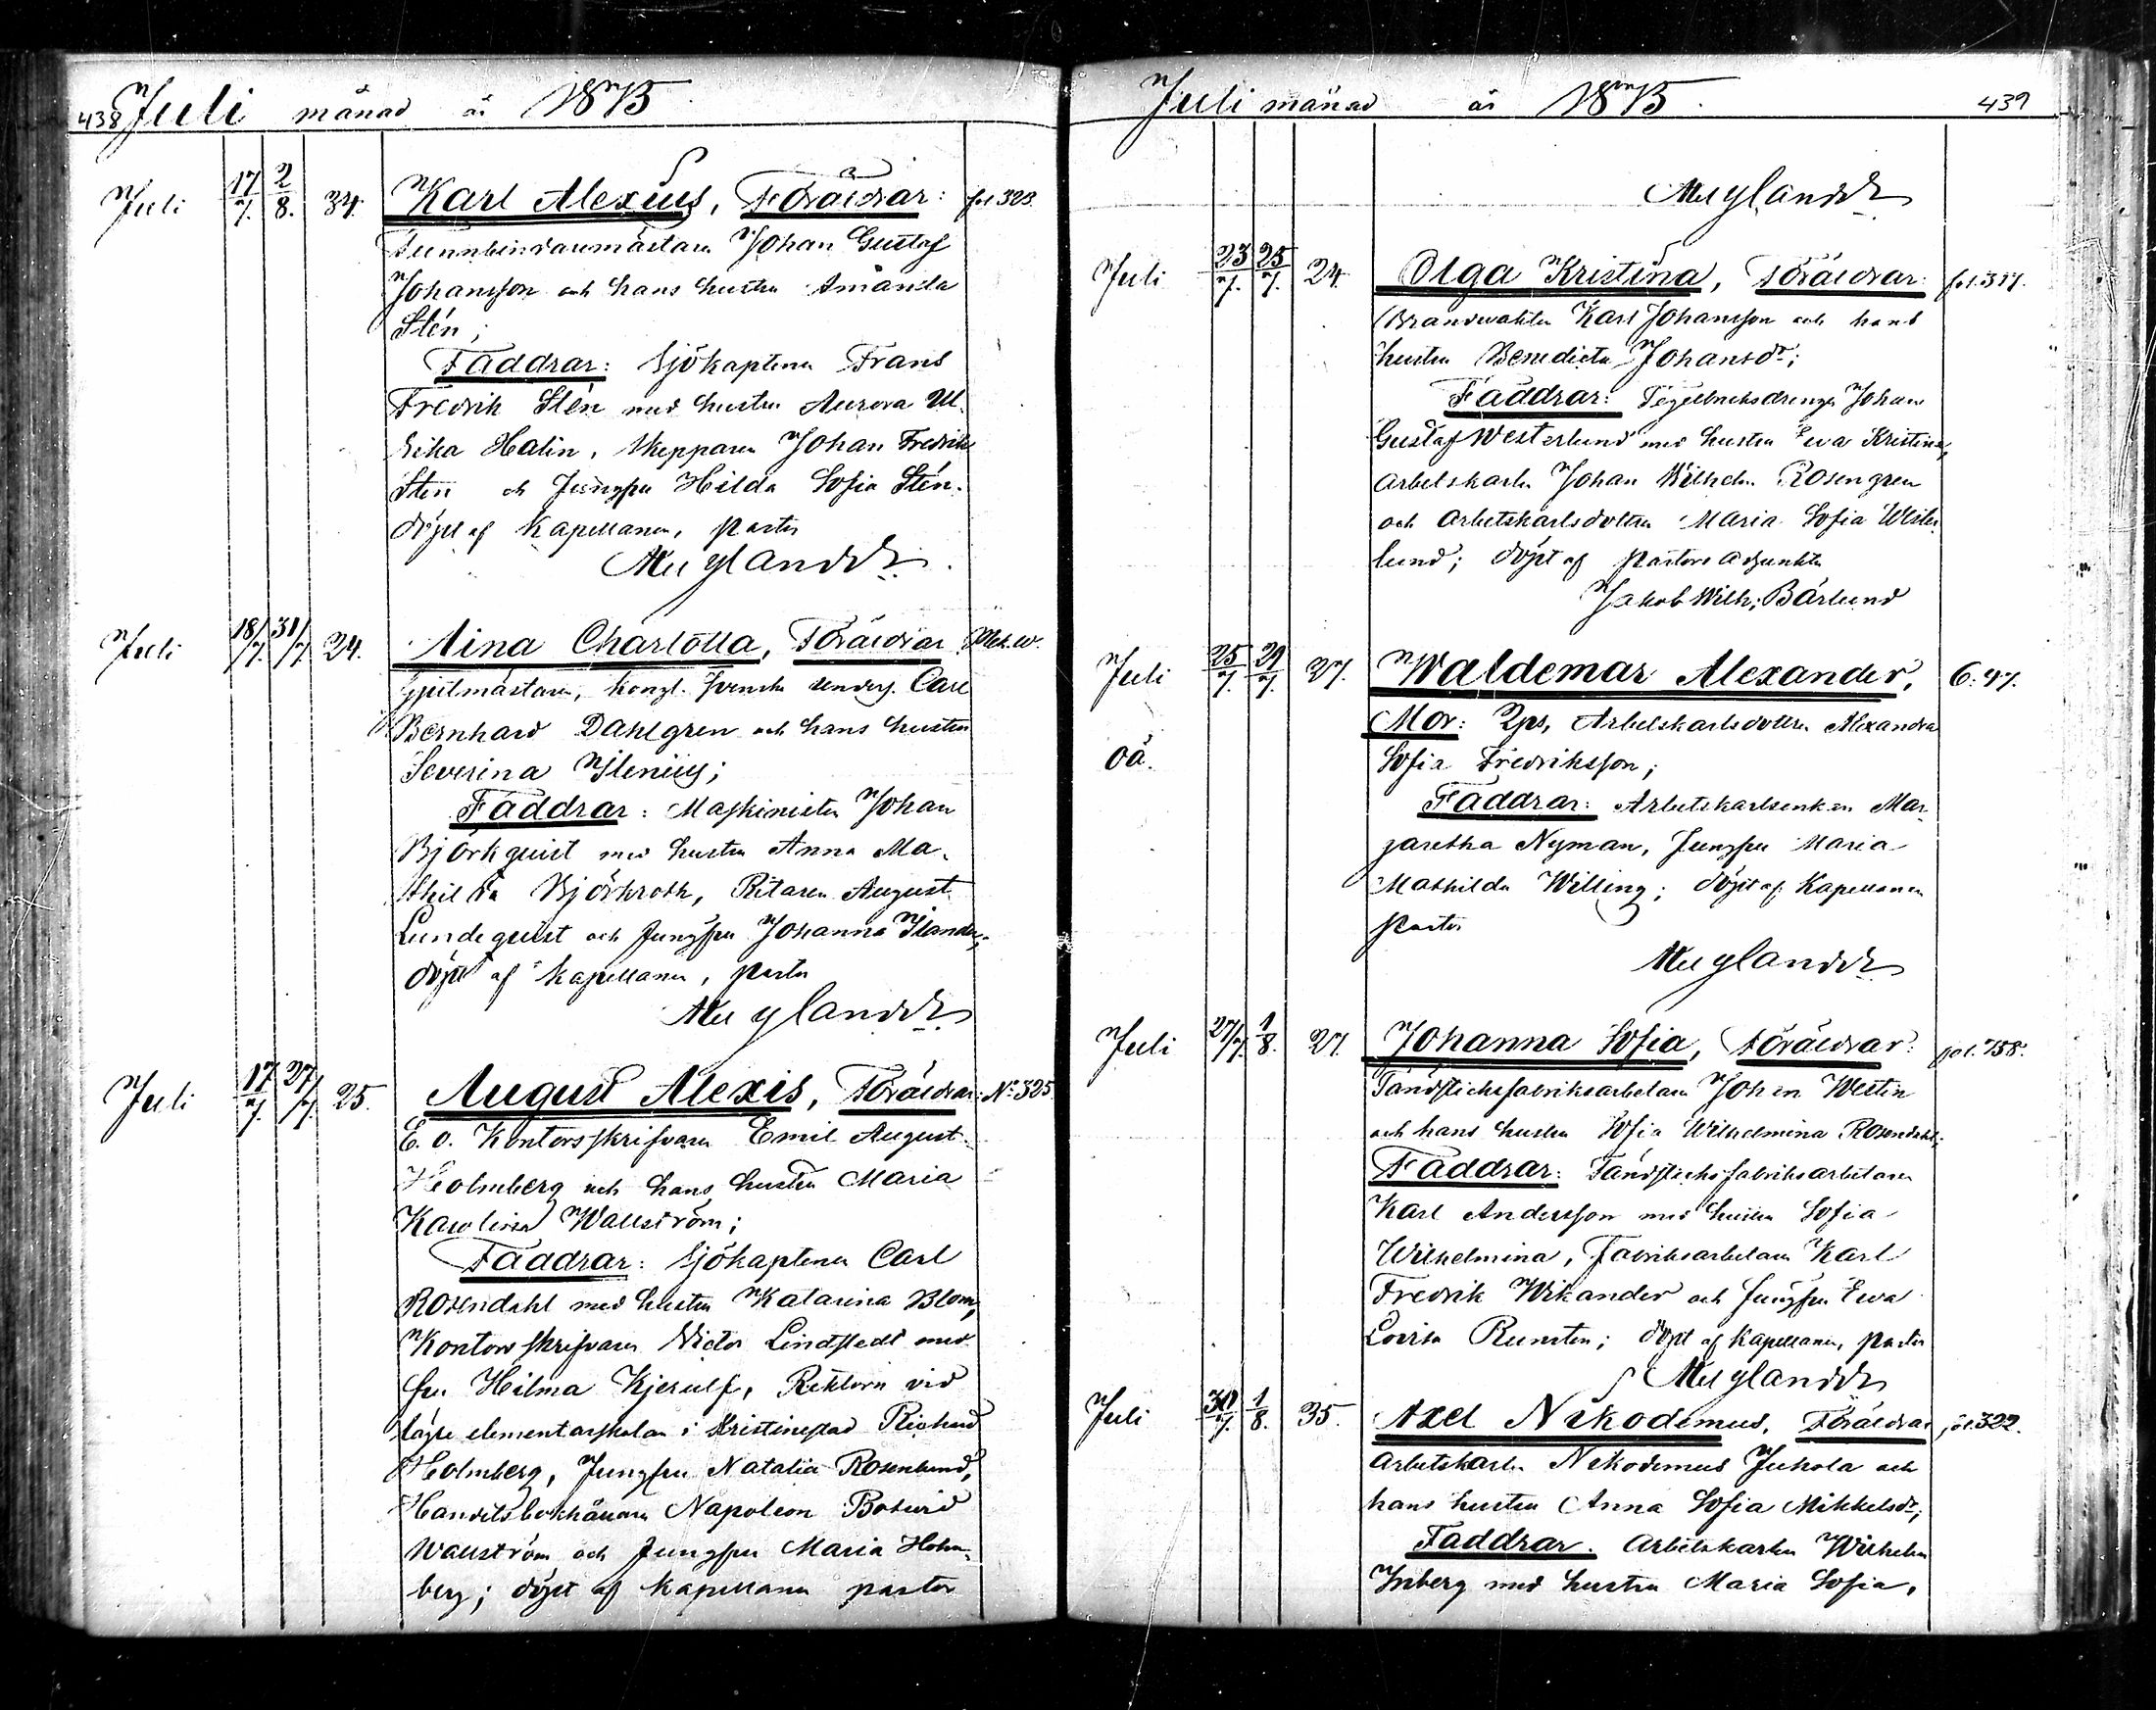 438 Juli månad år 1875.
Juli 17/7. 2/8. 34. Karl Alexius, Föräldrar: fol 328.
Tunnbindaremästaren Johan Gustaf
Johansson och hans hustru Amanda
Stén;
Faddrar: Sjökaptenen Frans
Fredrik Stén med hustru Aurora Ul-
rika Halin, Skepparen Johan Fredrik
Stén och Jungfru Hilda Sofia Stén.
döpt af Kapellanen, pastor
Juli 18/7. 31/7. 24. Aina Charlotta, Föräldrar
Gjutmästaren, Kongl. Svenska unders. Carl
Bernhard Dahlgren och hans hustru
Severina Ilenius;
Faddrar: Maskinisten Johan
Björkquist med hustru Anna Ma-
thilda Björkroth, Ritaren August
Lundequist och Jungfru Johanna Ilander;
döpt af kapellanen, pastor
Juli 17/7. 27/7. 25. August Alexis, Föräldrar: No 325.
E. o. Kontorsskrifvaren Emil August
Holmberg och hans hustru Maria
Karolina Wallström;
Faddrar: Sjökaptenen Carl
Rosendahl med hustru Katarina Blom,
Kontorsskrifvaren Victor Lindstedt med
fru Hilma Kjerulf, Rektorn vid
lägre elementarskolan i Kristinestad Richard
Holmberg, Jungfru Natalia Rosenlund,
Handelsbokhållaren Napoleon Botvid
Wallström och Jungfru Maria Holm-
berg; döpt af kapellanen pastor
Juli månad år 1875. 439
Juli 23/7. 25/7. 24. Olga Kristina, Föräldrar: fol. 317.
Brandvakten Karl Johansson och hans
hustru Benedicta Johansdr;
Faddrar: Tegelbruksdrengen Johan
Gustaf Westerlund med hustru Eva Kristina,
Arbetskarlen Johan Wilhelm Rosengren
och Arbetskarlsdottren Maria Sofia Wester-
lund; döpt af pastors adjunkten
Jakob Wilh; Bärlund
Juli 25/7. 29/7. 37. Waldemar Alexander, 6. 47.
Mor: Qps, Arbetskarlsdottren Alexandra
oä. Sofia Fredriksson;
Faddrar: Arbetskarlsenkan Mar-
garetha Nyman, Jungfru Maria
Mathilda Willing; döpt af Kapellanen
pastor
Juli 27/7. 1/8. 27. Johanna Sofia, Föräldrar: fol. 758.
Tändsticksfabriksarbetaren Johan Westin
och hans hustru Sofia Wilhelmina Rosendahl;
Faddrar: Tändsticksfabriksarbetaren
Karl Andersson med hustru Sofia
Wilhelmina, Fabriksarbetaren Karl
Fredrik Wikander och Jungfru Eva
Lovisa Runsten; döpt af kapellanen, pastor
Juli 30/7. 1/8. 35. Axel Nikodemus, Föräldrar fol. 322.
Arbetskarlen Nikodemus Jukola och
hans hustru Anna Sofia Mikkelsdr;
Faddrar. Arbetskarlen Wilhelm
Inberg med hustru Maria Sofia,